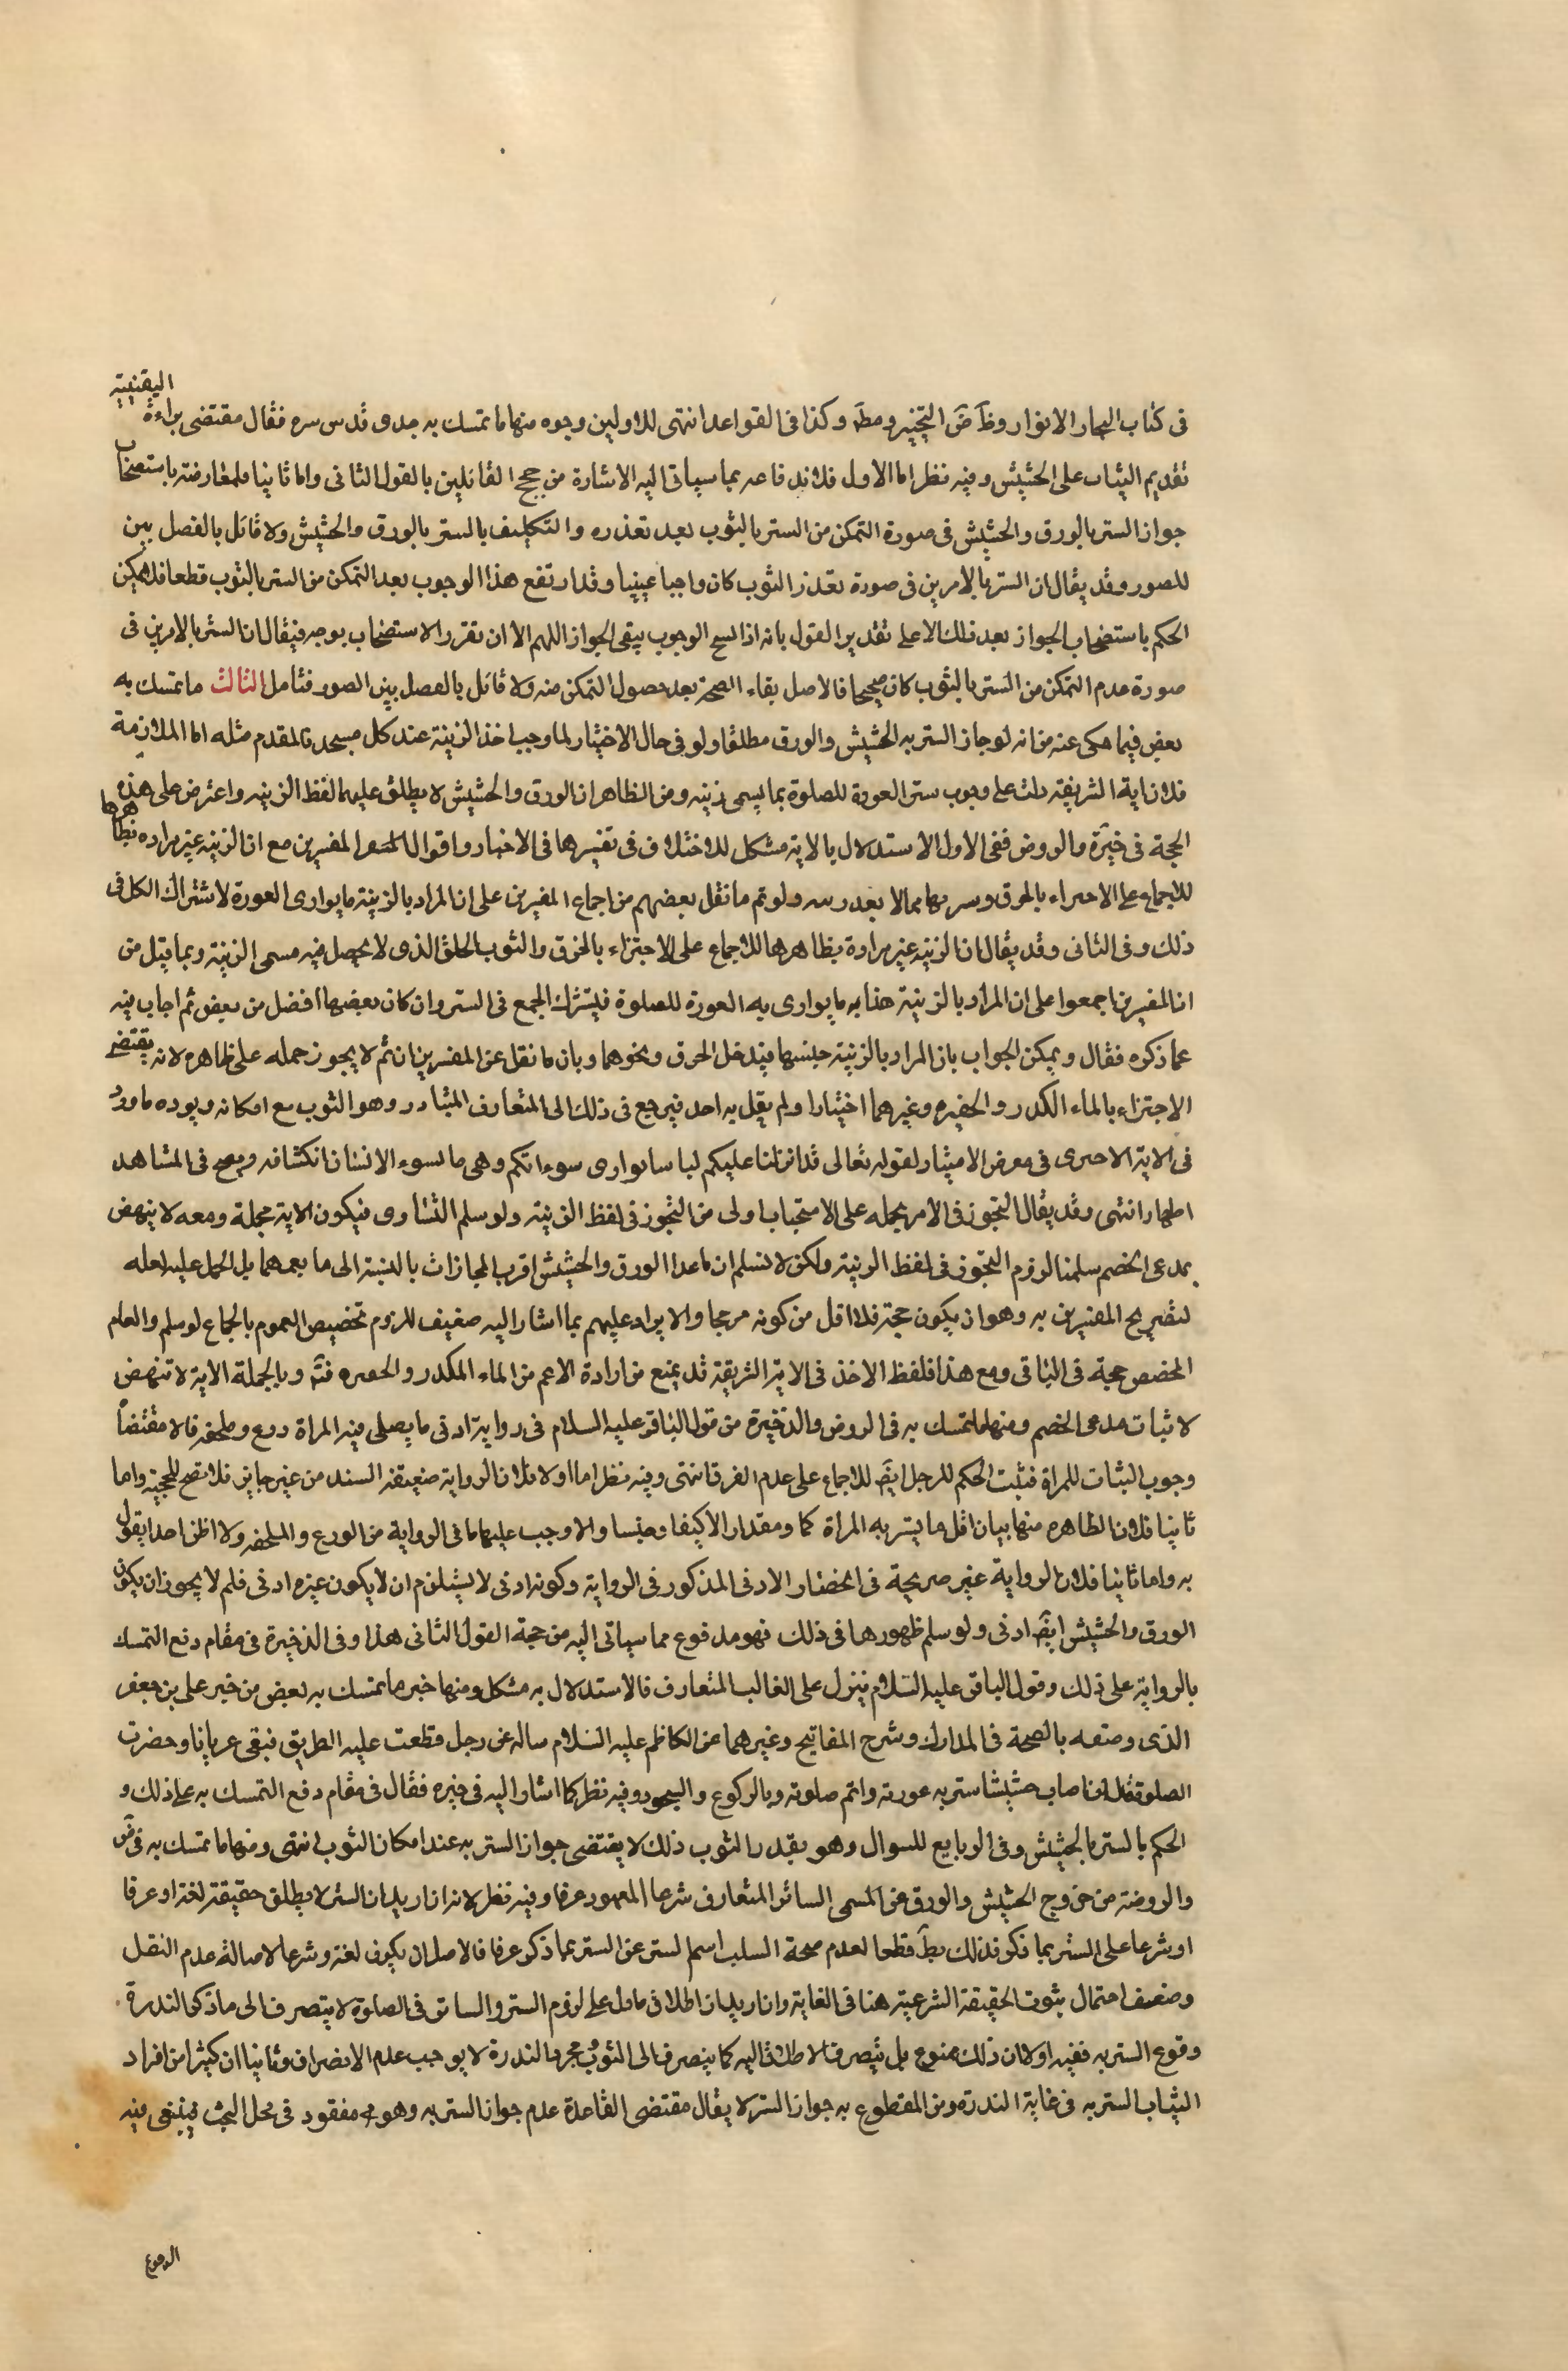 اليقينية
فى كتاب البحار الانوار وظ ض التجنيز ومط وكذا فى القواعد انتهى للاولين وجوه منها ما تمسك به جدى قدس سره فقال مقتضى براءة
تقديم الثياب على الحشيش وفيه نظر اما الاول فلاندفاعه بما سياتى اليه الاشارة من حجج القائلين بالقول الثانى واما ثانيا فلمعارضته باستصحاب
جواز الستر بالورق والحشيش فى صورة التمكن من الستر بالثوب بعد تعذره والتكليف بالستر بالورق والحشيش ولا قائل بالفصل بين
للصور وقد يقال ان الستر بالامرين فى صورة تعذر الثوب كان واجبا عينيا وقد ارتفع هذا الوجوب بعد التمكن من الستر بالثوب قطعا فلا يمكن
الحكم باستصحاب الجواز بعد ذلك الا على تقدير القول بانه اذا نسخ الوجوب يبقى الجواز اللهم الا ان تقرر الاستصحاب بوجه فيقال ان الستر بالامرين فى
صورة عدم التمكن من الستر بالثوب كان صحيحا فالاصل بقاء الصحة بعد حصول التمكن منه ولا قائل بالفصل بين الصور فتامل الثالث ما تمسك به
بعض فيما حكى عنه من انه لو جاز الستر به الحشيش والورق مطلقا ولو فى حال الاختيار لما وجب اخذ الزينة عند كل مسجد فالمقدم مثله اما الملازمة
فلان اية الشريفة دلت على وجوب ستر العورة للصلوة بما يسمى زينه ومن الظاهر ان الورق والحشيش لا يطلق عليهما لفظ الزينه واعترض على هذه
الحجة فى خيرة والروض ففى الاول الاستدلال بالاية مشكل للاختلاف فى تفسيرها فى الاخبار واقوال المفسرين مع ان الزينه غير مراده بظاهرها
للاجماع على الاجتزاء بالخرق ولو تم ما نقل بعضهم من اجماع المفسرين على ان المراد بالزينة ما يوارى العورة لاشتراك الكل فى
ذلك وفى الثانى وقد يقال ان الزينه غير مرادة بظاهرها للاجماع على الاجتزاء بالخرق والثوب الخلق الذى لا يحصل فيه مسمى الزينة وبما قيل من
ان المفسرين اجمعوا على ان المراد بالزينة هذا به ما يوارى به العورة للصلوة فيشترك الجمع فى الستر وان كان بعضها افضل من بعض ثم اجاب فيه
عما ذكره فقال ويمكن الجواب بان المراد بالزينة جنسها فيدخل الخرق ونحوهما وبان ما نقل عن المفسرين ان تم لا يجوز حمله على ظاهره لانه يقتضى
الاجتزاء بالماء الكدر والحفيره وغيرهما اختيارا ولم يقل به احد فيرجع فى ذلك الى المتعارف المتبادر وهو الثوب مع امكانه ويوده ما ورد
فى الاية الاخرى فى معرض الامتنان لقوله تعالى قد انزلنا عليكم لباسا يوارى سوءاتكم وهى ما يسوء الانسان انكشافه ويقبح فى المشاهد
اظهارا انتهى وقد يقال التجوز فى الامر بحمله على الاستحباب اولى من التجوز فى لفظ الزينة ولو سلم التساوى فيكون الاية مجملة ومعه لا ينهض
بمدعى الخصم سلمنا لزوم التجوز فى لفظ الزينة ولكن لا نسلم ان ما عدا الورق والحشيش اقرب المجازات بالنسبة الى ما يعمهما بل الحمل عليه لعله
لتصريح المفسرين به وهو ان يكون حجة فلا اقل من كونه مرجحا والايراد عليهم بما اشار اليه ضعيف للزوم تخصيص العموم بالجماع لو سلم والعام
المخصص حجة فى الباقى ومع هذا فلفظ الاخذ فى الاية الشريفة قد يمنع من ارادة الاعم من الماء المكدر والحفيره فته وبالجملة الاية لا تنهض
لاثبات مدعى الخصم ومنها ما تمسك به فى الروض والذخيرة من قول الباقر عليه السلام فى رواية ادنى ما يصلى فيه المراة درع وملحفه فالا مقتضاه
وجوب الثبات للمراة فثبت الحكم للرجل ايض للاجماع على عدم الفرق انتهى وفيه نظر اما اولا فلان الرواية ضعيفه السند من غير جابر فلا تصح للحجية واما
ثانيا فلان الظاهره منها بيان اقل ما يستر به المراة كما ومقدار الاكيفا وجنسا والا وجب عليهما ما فى الرواية من الورع والملحفه ولا اظن احدا يقول
به واما ثانيا فلان الرواية غير صريحة فى انحصار الادنى المذكور فى الرواية وكونه ادنى لا يستلزم ان لا يكون غيره ادنى فلم لا يجوز ان يكون
الورق والحشيش ايض ادنى ولو سلم ظهورها فى ذلك فهو مدفوع مما سياتى اليه من حجة القول الثانى هذا وفى الذخيرة فى مقام دفع التمسك
بالرواية على ذلك وقول الباقر عليه السلام فينزل على الغالب المتعارف فالاستدلال به مشكل ومنها خبر ما تمسك به بعض من خبر على بن جعفر
الذى وصفه بالصحة فى المدارك وشرح المفاتيح وغيرهما عن الكاظم عليه السلام ساله عن رجل قطعت عليه الطريق فبقى عريانا وحضرت
الصلوة قال ان اصاب حشيشا ستر به عورته واتم صلوته وبالركوع والسجود وفيه نظر كما اشار اليه فى خيره فقال فى مقام دفع التمسك به على ذلك و
الحكم بالستر بالحشيش وفى الوبايع للسوال وهو بقدر الثوب ذلك لا يقتضى جواز الستر به عند امكان الثوب انتهى ومنها ما تمسك به فى ض
والروضه من خروج الحشيش والورق عن المسمى الساتر المتعارف شرعا المعهود عرفا وفيه نظر لانه ان اريد ان الستر لا يطلق حقيقة لغة او عرفا
او شرعا على الستر بما ذكر فذلك بط قطعا لعدم صحة السلب اسم الستر عن الستر بما ذكر عرفا فالاصل ان يكون لغة وشرعا لاصالة عدم النقل
وضعيف احتمال ثبوت الحقيقة الشرعية هنا فى الغاية وان اريد ان اطلاق ما دل على لزوم الستر والساتر فى الصلوة لا يتصرف الى ما ذكر لندرة
وقوع الستر به ففيه اولا ان ذلك ممنوع بل يتصرف الاطلاق اليه كما ينصرف الى الثوب مجرد الندرة لا يوجب عدم الانصراف وثانيا ان كثيرا من افراد
الثياب الستر به فى غاية الندرة ومن المقطوع به جواز الستر لا يقال مقتضى القاعدة عدم جواز الستر به وهو مفقود فى محل البحث فينبغى فيه